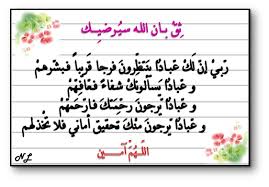 ثِقْ بـان الله سيُرضيـك
ربيْ إنّ لكَ عبادًا ينتظِرونَ فرجا قريباً فبشرهمْ
و عبادًا يَسألونكَ شفاءً فعافِهمْ
و عبادًا يَرجونَ رحمتكَ فارحَمهُمْ
و عبادًا يرجونَ منْكَ تحقيق أماني فلا تخذلهم
اللّهُمّ آمـين
NL